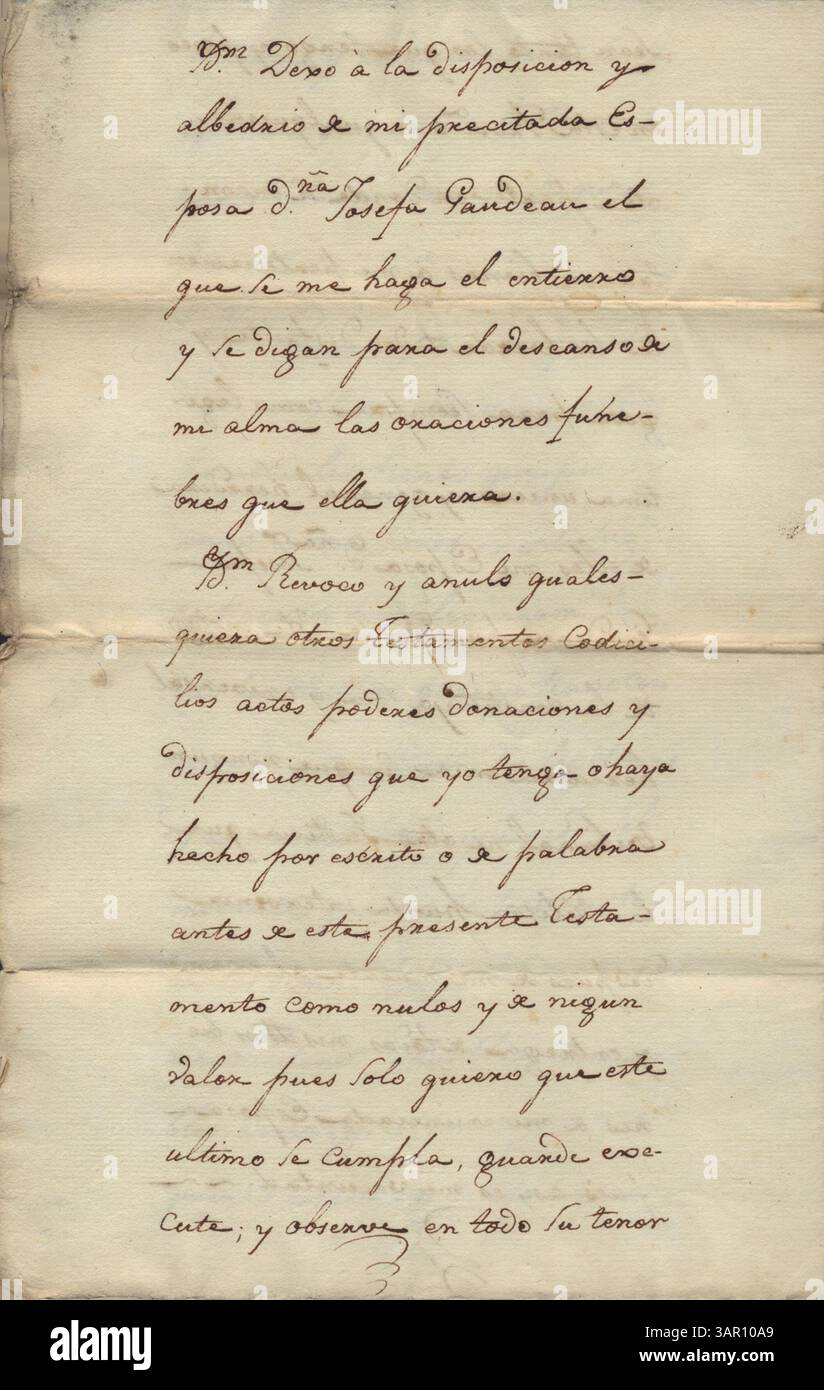 Ytm. Dexo à la disposicion y
albedrio de mi precitada Es-
posa d.ña Josefa Gaudeau el
que se me haga el entierro
y se digan para el descanso de
mi alma las oraciones fune-
bres que ella quiera.
Ytm. Revoco y anulo quales-
quiera otros Testamentos Codici-
lios actos poderes donaciones y
disposiciones que yo tenga o haya
hecho por escrito o de palabra
antes de este presente Testa-
mento como nulos y de nigun
valor pues solo quiero que este
ultimo se cumpla, guarde exe-
cute; y observe en todo su tenor
alamy
Image ID: 3AR10A9
www.alamy.com